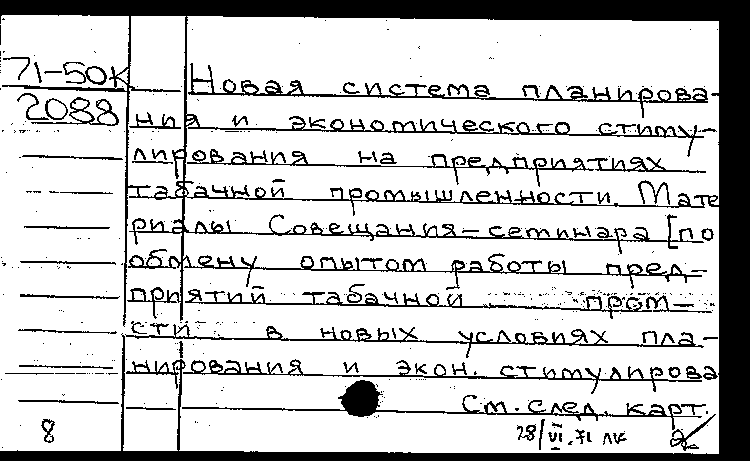 71-50К
2088
Новая система планирова-
ния и экономического стиму-
лирования на предприятиях
табачной промышленности. Мате
риалы Совещания-семинара [по
обмену опытом работы пред-
приятий табачной пром-
сти в новых условиях пла-
нирования и экон. стимулирова
См. след. карт.
8
28/VI.71